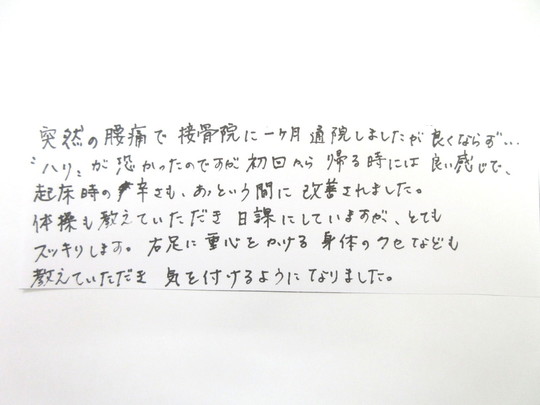 突然の腰痛で接骨院に一ヶ月通院しましたが良くならず…
“ハリ”が恐かったのですが初回から帰る時には良い感じで、
起床時の辛さも、あっという間に改善されました。
体操も教えていただき日課にしていますが、とても
スッキリします。右足に重心をかける身体のクセなども
教えていただき気を付けるようになりました。